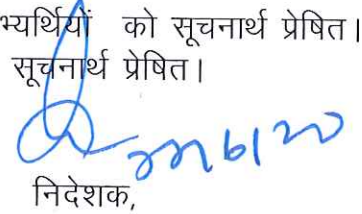 भ्यर्थियों को सूचनार्थ प्रेषित।
सूचनार्थ प्रेषित।
निदेशक,